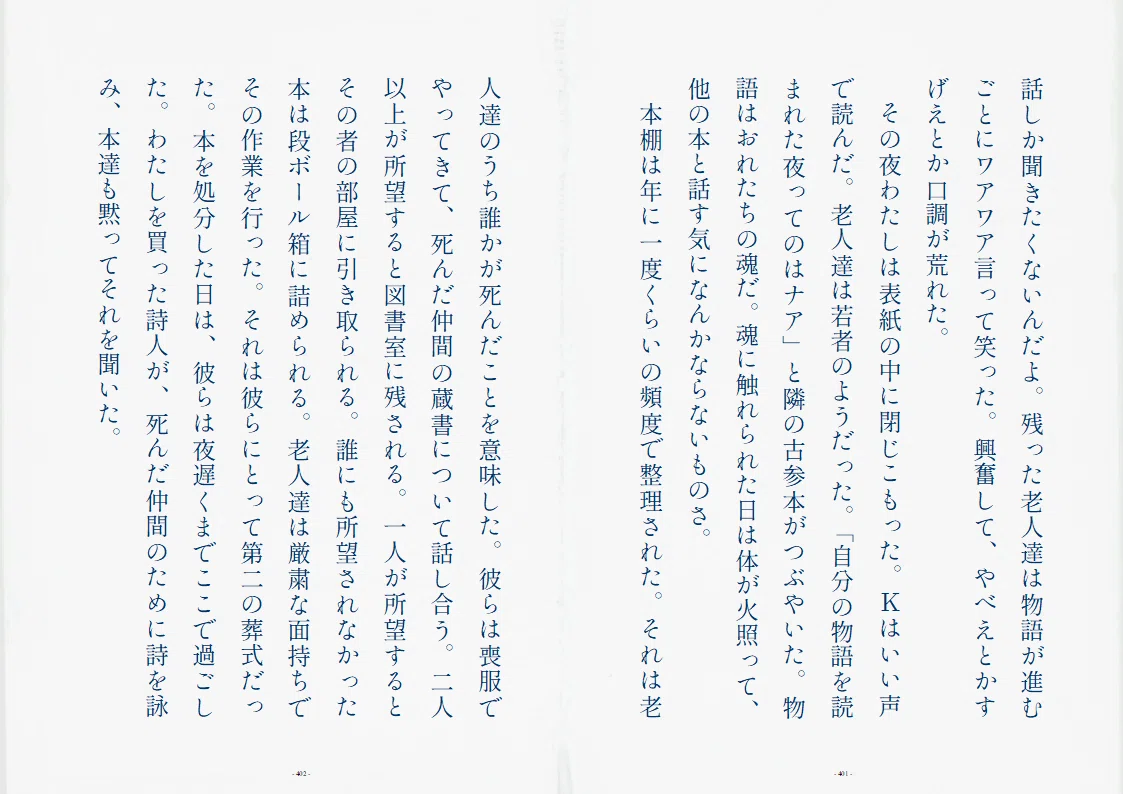 話しか聞きたくないんだよ。残った老人達は物語が進む
ごとにワアワア言って笑った。興奮して、やべえとかす
げえとか口調が荒れた。
その夜わたしは表紙の中に閉じこもった。Kはいい声
で読んだ。老人達は若者のようだった。「自分の物語を読
まれた夜ってのはナア」と隣の古参本がつぶやいた。物
語はおれたちの魂だ。魂に触れられた日は体が火照って、
他の本と話す気になんかならないものさ。
本棚は年に一度くらいの頻度で整理された。それは老
- 401 -
人達のうち誰かが死んだことを意味した。彼らは喪服で
やってきて、死んだ仲間の蔵書について話し合う。二人
以上が所望すると図書室に残される。一人が所望すると
その者の部屋に引き取られる。誰にも所望されなかった
本は段ボール箱に詰められる。老人達は厳粛な面持ちで
その作業を行った。それは彼らにとって第二の葬式だっ
た。本を処分した日は、彼らは夜遅くまでここで過ごし
た。わたしを買った詩人が、死んだ仲間のために詩を詠
み、本達も黙ってそれを聞いた。
- 402 -